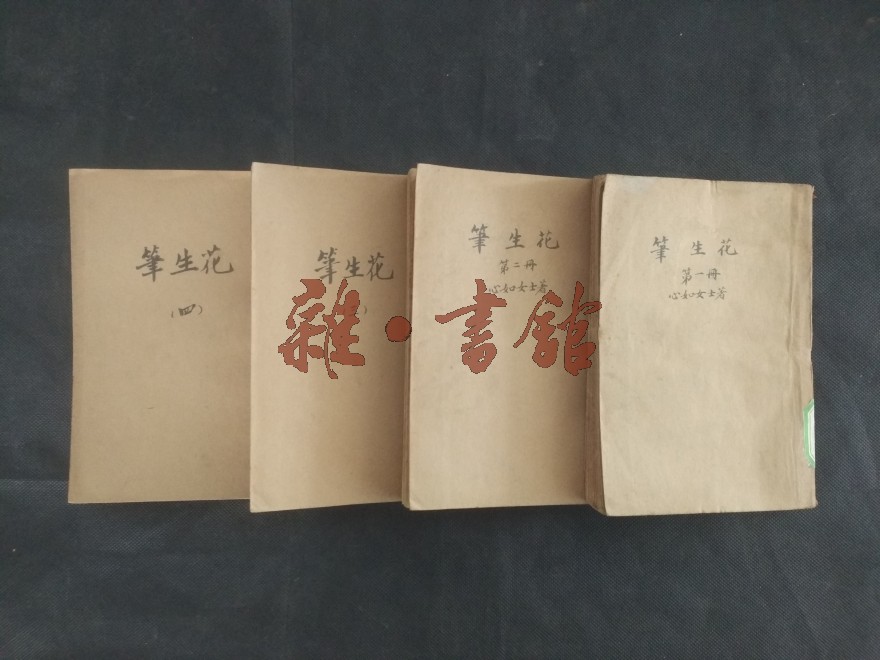 筆生花
第一冊
心如女士著
筆生花
第二冊
心如女士著
筆生花
筆生花
(四)
雜·書館